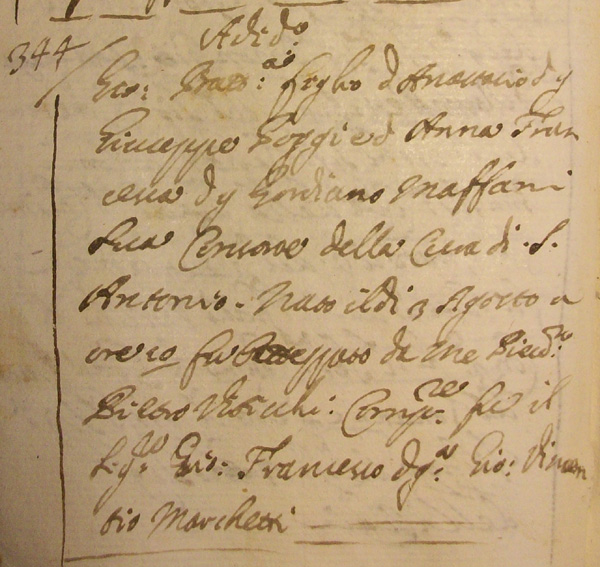 344
A di d.o
Gio: Batt:a figlio d Anastasio d q
Giuseppe Poggi e d Anna Fran
cesca d q Gordiano Maffani
sua Consorte della Cura di S.
Antonio. Nato il di 3 Agosto a
ore 10 fu Battezzato da me Pied:o
Comp.re fu il
Sig.re Gio: Francesco d q.m Gio: Vincen
tio Marchetti